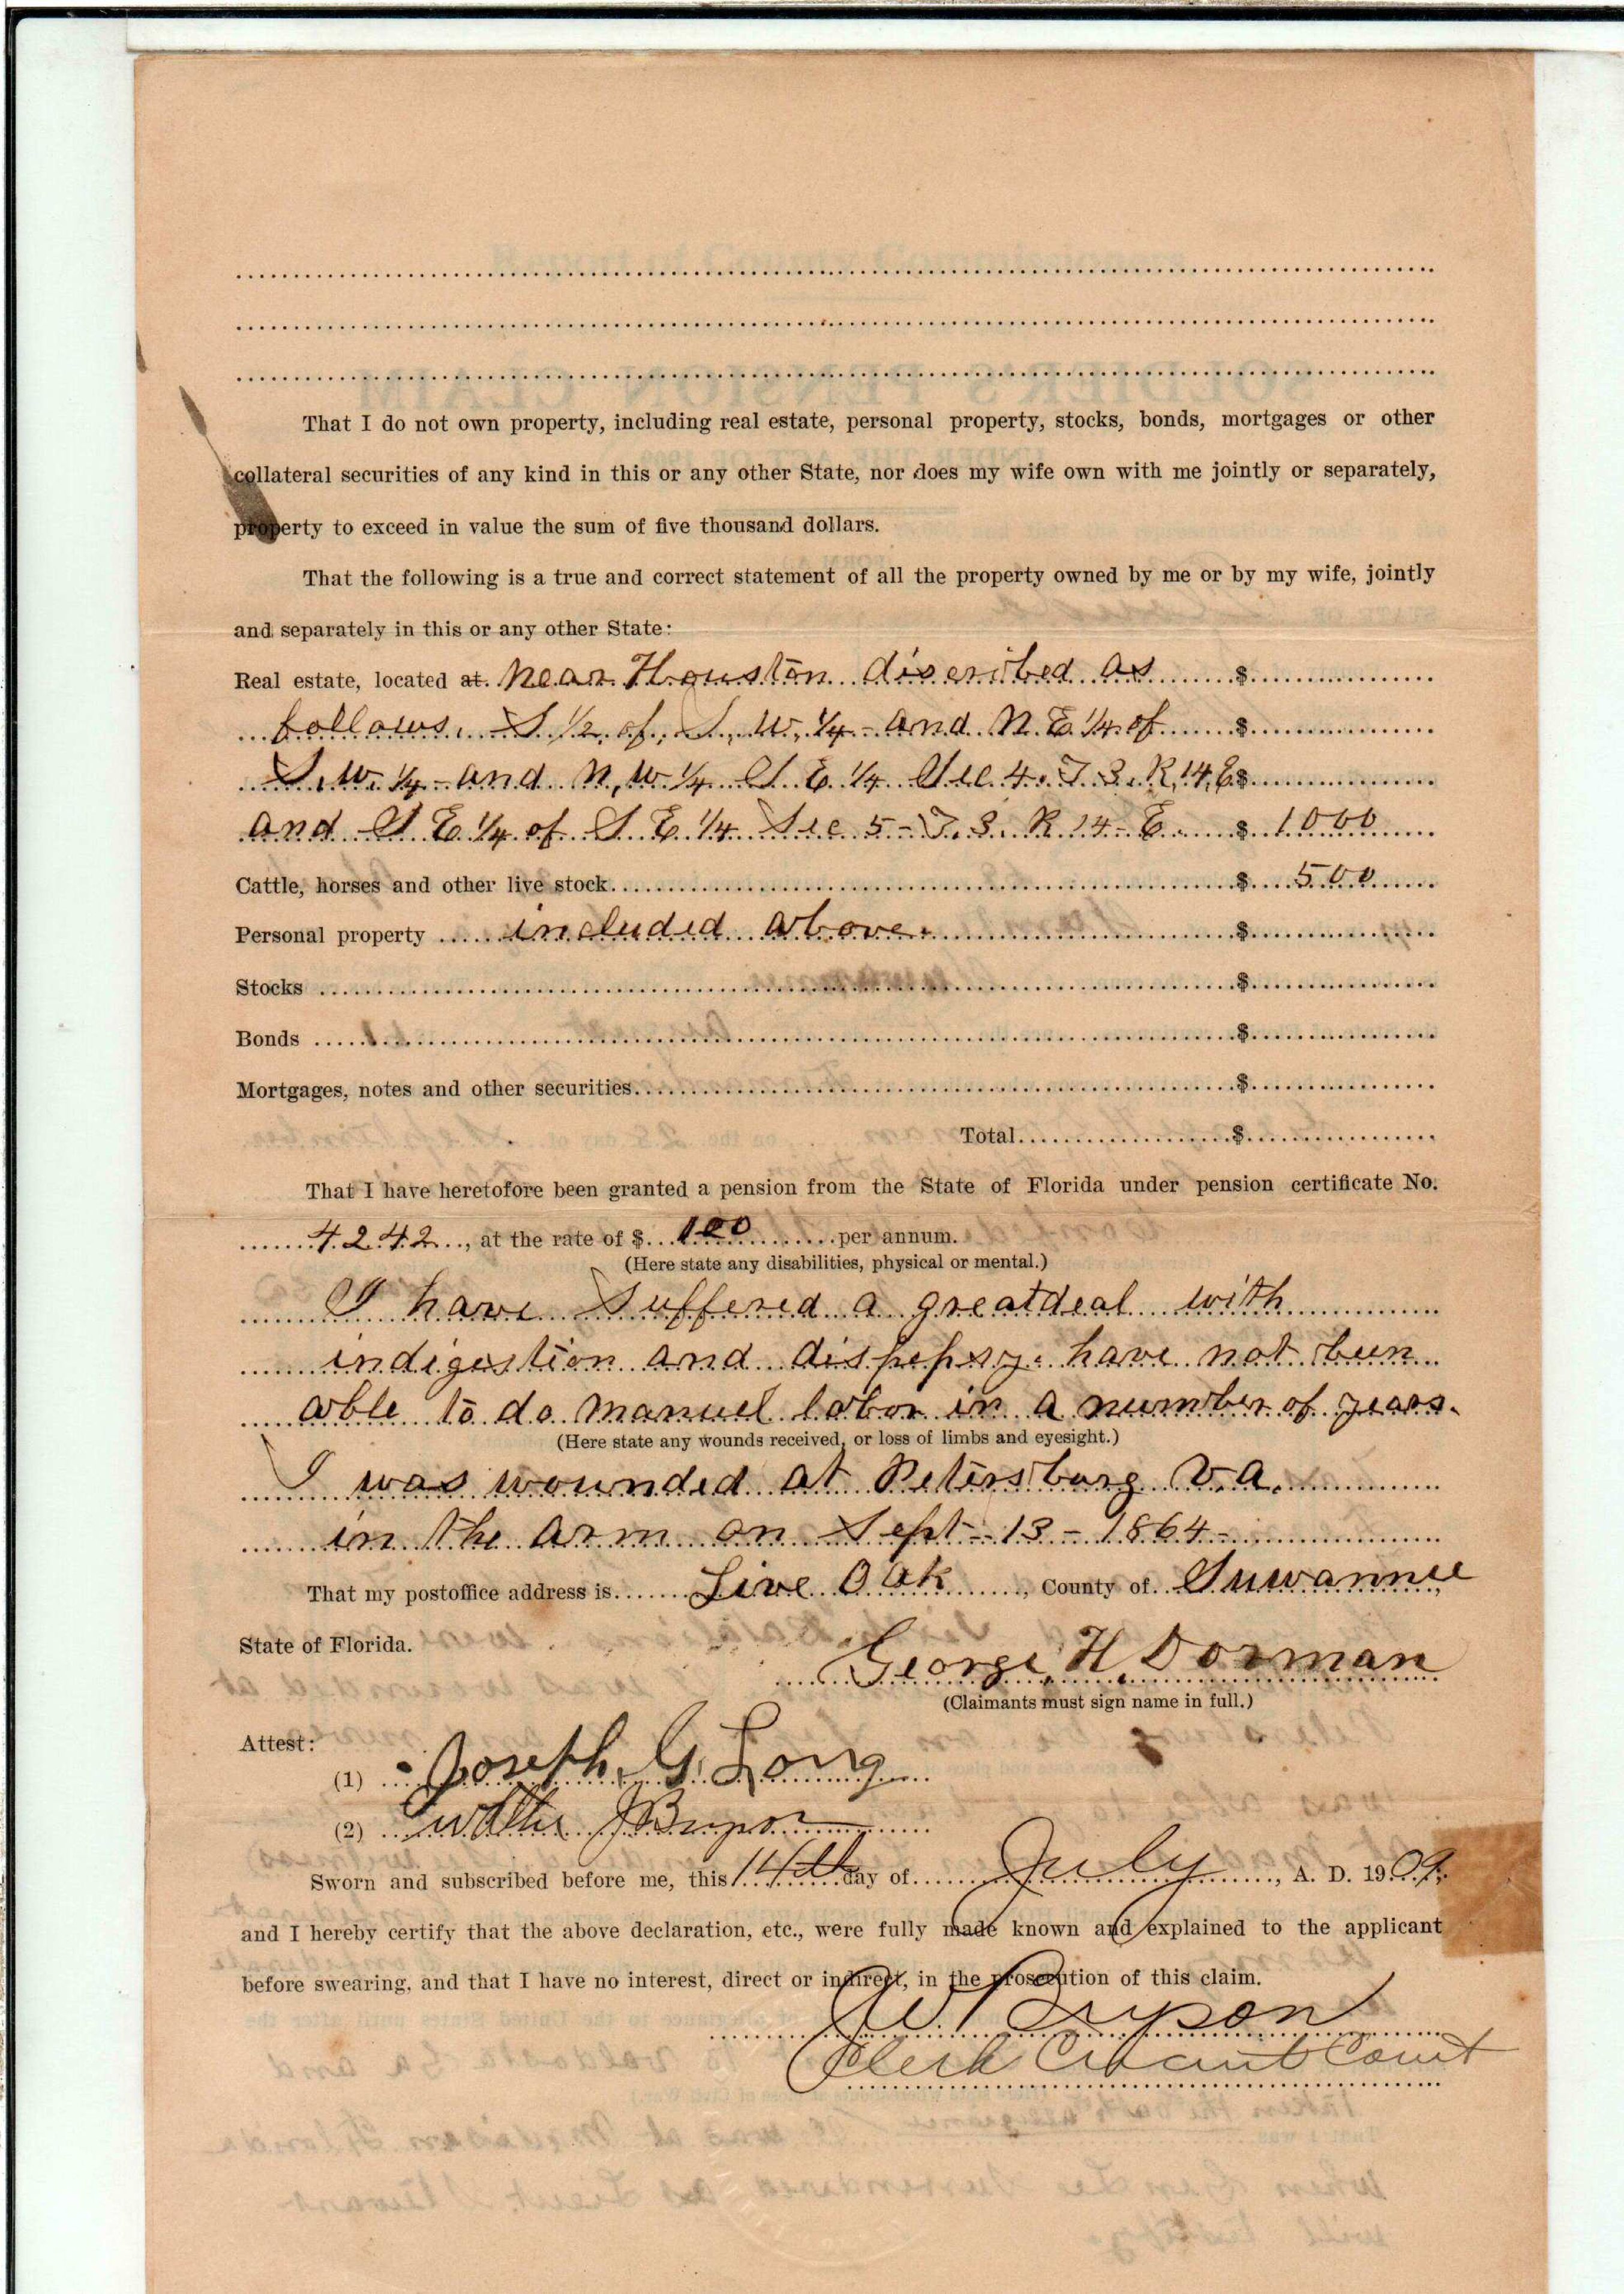 That I do not own property, including real estate, personal property, stocks, bonds, mortgages or other
collateral securities of any kind in this or any other State, nor does my wife own with me jointly or separately,
property to exceed in value the sum of five thousand dollars.
That the following is a true and correct statement of all the property owned by me or by my wife, jointly
and separately in this or any other State:
Real estate, located at near Houston discribed as $
follows. S 1/2 of S, W, 1/4 - and N. E 1/4 of $
S, W. 1/4 - and N, W 1/4 S E 1/4 Sec 4. T 3. R, 14, E $
and S E 1/4 of S E 1/4 Sec 5 - T. 3. R 14 - E. $ 1000
Cattle, horses and other live stock $ 500
Personal property included above. $
Stocks $
Bonds $
Mortgages, notes and other securities $
Total $
That I have heretofore been granted a pension from the State of Florida under pension certificate No.
4242, at the rate of $ 100 per annum.
(Here state any disabilities, physical or mental.)
I have Suffered a greatdeal with
indigestion and dispepsy. have not been
able to do manuel labor in a number of years.
(Here state any wounds received, or loss of limbs and eyesight.)
I was wounded at Petersburg V.a.
in the arm on Sept - 13 - 1864 -
That my postoffice address is Live Oak, County of Suwannee,
State of Florida.
George, H, Dorman
(Claimants must sign name in full.)
Attest:
(1) Joseph, G. Long
(2) J Bryson
Sworn and subscribed before me, this 14th day of July, A. D. 1909,
and I hereby certify that the above declaration, etc., were fully made known and explained to the applicant
before swearing, and that I have no interest, direct or indirect, in the prosecution of this claim.
J W Bryson
Clerk Circuit Court